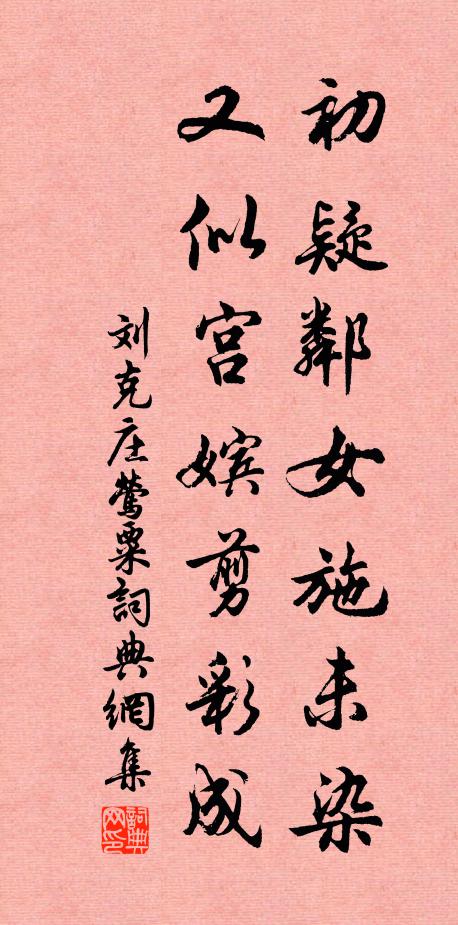 初疑鄰女施未染
又似宫嬪剪彩成
刘克庄莺粟詞典網集
詞典网印